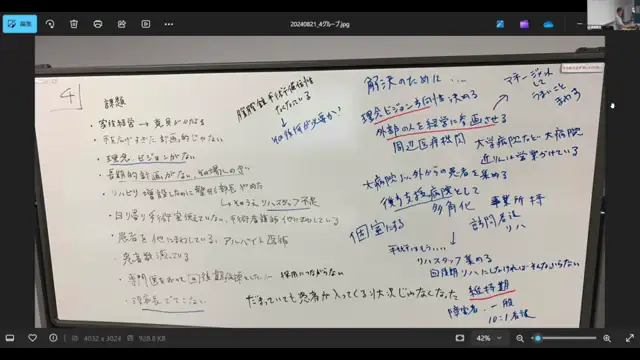 編集
20240821_4グループ.jpg
4
課題
・家族経営 → 意見がかたよる
・手を広げすぎた 計画的じゃない
・理念、ビジョンがない
・長期的計画がない、その場しのぎ
・リハビリ増設したのに整形部長やめた
→ そのうえ リハスタッフ不足
・日帰り手術実施していない、手術看護師他にまわしている
・患者を他にまわしている、アルバイト医師
・患者数減っている
・専門医をおいて回復期病床とした… 採用につながらない
・でてこない
腹腔鏡手術
なくなっている
↓
その技術が必要か?
解決のために…
理念ビジョン方向性 決める
外部の人を経営に参画させる
マネージメント
して
うまいこと
まわる
周辺医療機関 大学病院など大病院
近くには営業かけている
大病院以外からの患者を集める
後方支援病院として
多角化 事業所
訪問看護
リハ
個室にする
手術はもう…
↓
リハスタッフ集める
回復期リハにしなければ
だまっていても患者が入ってくる状況じゃなくなった
維持期
障害者・一般
10:1看護
4032 x 3024
928.8 KB
42%